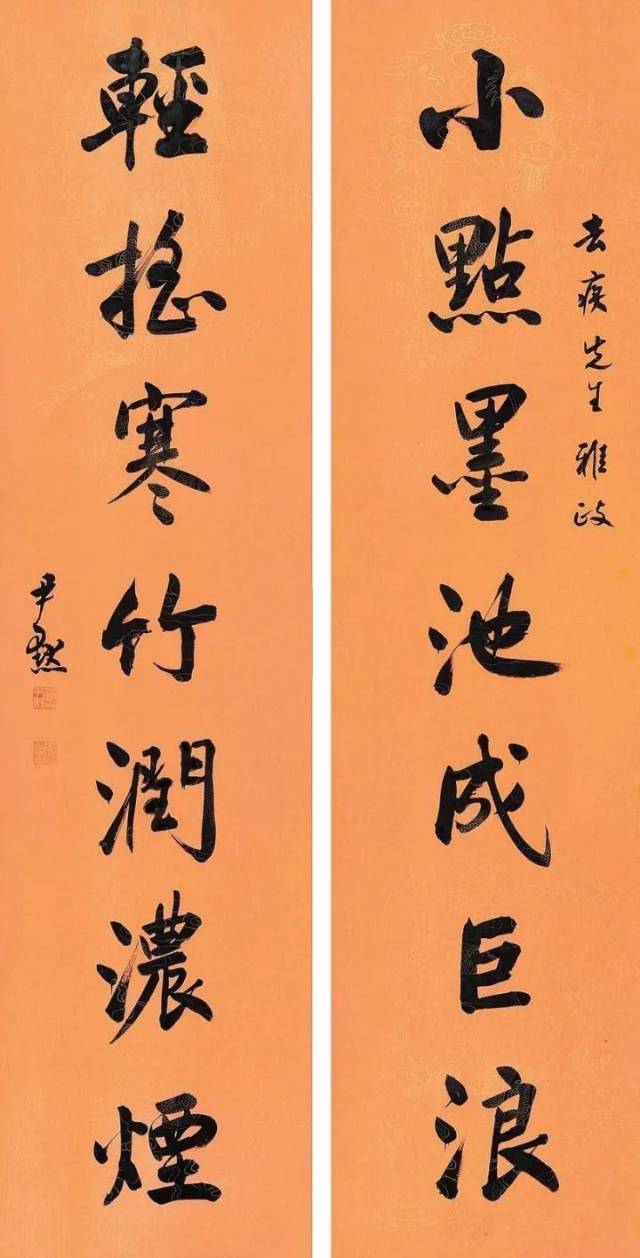 去疾先生雅政
小點墨池成巨浪
輕搖寒竹潤濃煙
尹默